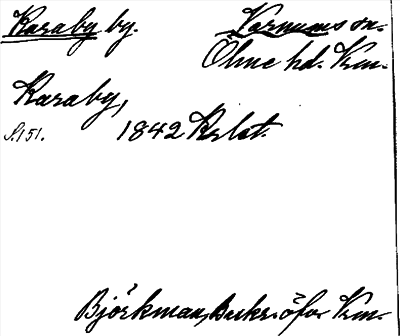 Karaby by. Varnums sn.
Ölme hd. Vrm.
Karaby,
S. 151. 1842 Rslst.
Björkman, Beskr. öfver Vrm.